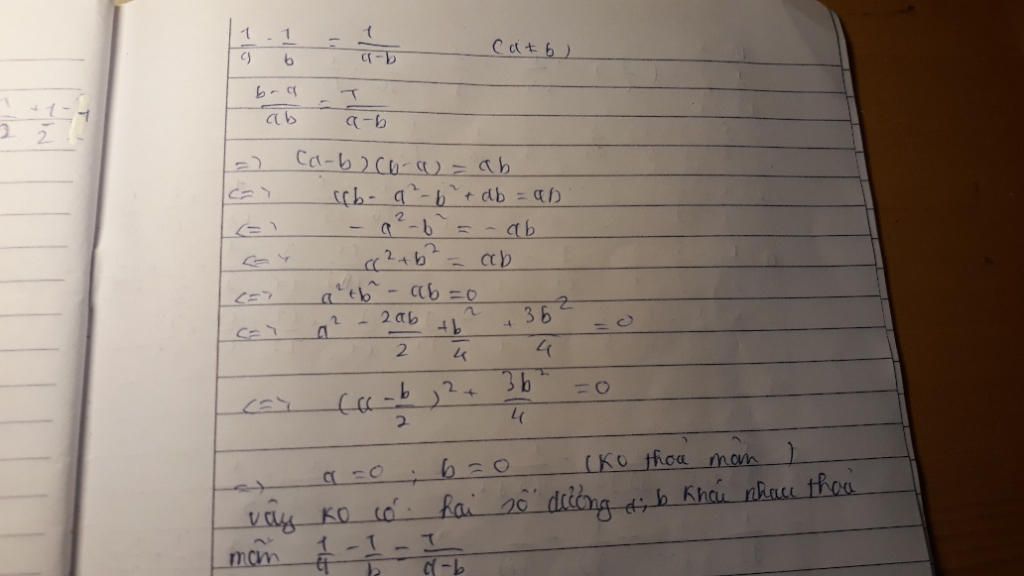 1/2 + 1/2
1/a - 1/b = 1/(a-b) (a≠b)
(b-a)/ab = 1/(a-b)
=> (a-b)(b-a) = ab
<=> ab - a² - b² + ab = ab
<=> - a² - b² = - ab
<=> a² + b² = ab
<=> a² + b² - ab = 0
<=> a² - 2ab/2 + b²/4 + 3b²/4 = 0
<=> (a - b/2)² + 3b²/4 = 0
=> a = 0 ; b = 0 (Ko thoả mãn)
vậy ko có hai số dương a; b khác nhau thoả
mãn 1/a - 1/b = 1/(a-b)